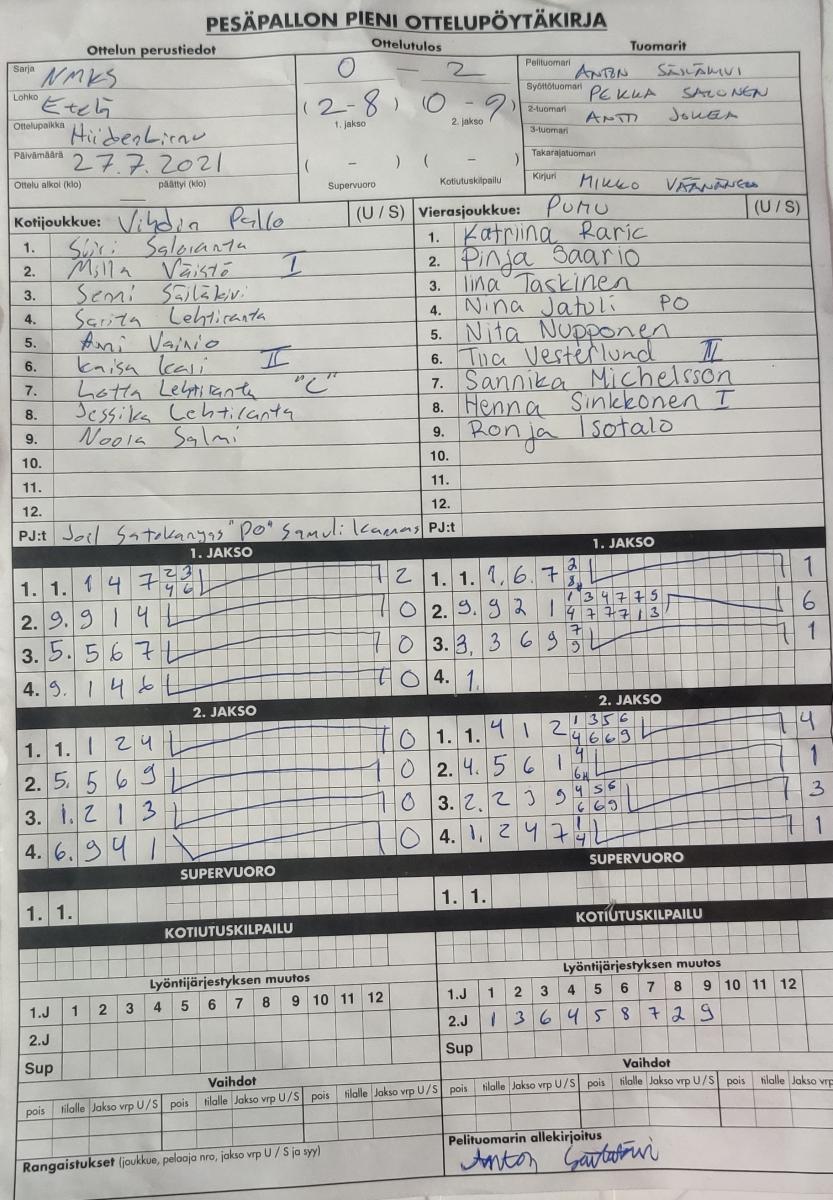 PESÄPALLON PIENI OTTELUPÖYTÄKIRJA
Ottelun perustiedot Ottelutulos Tuomarit
Sarja NMKS 0 - 2 Pelituomari ANTON SÄILÄKIVI
Lohko Etelä (2-8) (0-9) Syöttötuomari PEKKA SALONEN
1. jakso 2. jakso 2-tuomari ANTTI JOKELA
Ottelupaikka Hiidenhirnu 3-tuomari
Päivämäärä 27.7.2021 ( - ) ( - ) Takarajatuomari
Ottelu alkoi (klo) päättyi (klo) Supervuoro Kotiutuskilpailu Kirjuri MIKKO VÄÄNÄNEN
Kotijoukkue: Vihdin Pallo (U / S) Vierasjoukkue: PuMu (U / S)
1. Siiri Saloranta 1. Katriina Raric
2. Milla Väistö I 2. Pinja Saario
3. Senni Säiläkivi 3. Iina Taskinen
4. Sarita Lehtiranta 4. Nina Jatuli PO
5. Ami Vainio 5. Nita Nupponen
6. Kaisa Kasi II 6. Tiia Vesterlund II
7. Lotta Lehtiranta "C" 7. Sannika Michelsson
8. Jessika Lehtiranta 8. Henna Sinkkonen I
9. Noora Salmi 9. Ronja Isotalo
10. 10.
11. 11.
12. 12.
PJ:t Joel Satokangas "PO" Samuli Kamas PJ:t
1. JAKSO 1. JAKSO
1. 1. 1 4 7 2 3 4 6 2 1. 1. 1. 6. 7 2 8 1
2. 9. 9 1 4 0 2. 9. 9 2 1 1 3 4 7 7 5 4 7 7 7 1 3 6
3. 5. 5 6 7 0 3. 3. 3 6 9 7 9 1
4. 9. 1 4 6 0 4. 1.
2. JAKSO 2. JAKSO
1. 1. 1 2 4 0 1. 1. 4 1 2 1 3 5 6 4 6 6 9 4
2. 5. 5 6 9 0 2. 4. 5 6 1 4 6 1
3. 1. 2 1 3 0 3. 2. 2 3 9 4 5 6 6 6 9 3
4. 6. 9 4 1 0 4. 1. 2 4 7 1 4 1
SUPERVUORO SUPERVUORO
1. 1. 1. 1.
KOTIUTUSKILPAILU KOTIUTUSKILPAILU
Lyöntijärjestyksen muutos Lyöntijärjestyksen muutos
1.J 1 2 3 4 5 6 7 8 9 10 11 12 1.J 1 2 3 4 5 6 7 8 9 10 11 12
2.J 2.J 1 3 6 4 5 8 7 2 9
Sup Sup
Vaihdot Vaihdot
pois tilalle Jakso vrp U / S pois tilalle Jakso vrp U / S pois tilalle Jakso vrp U / S pois tilalle Jakso vrp U / S pois tilalle Jakso vrp U / S pois tilalle Jakso vrp
Rangaistukset (joukkue, pelaaja nro, jakso vrp U / S ja syy) Pelituomarin allekirjoitus
Anton Säiläkivi